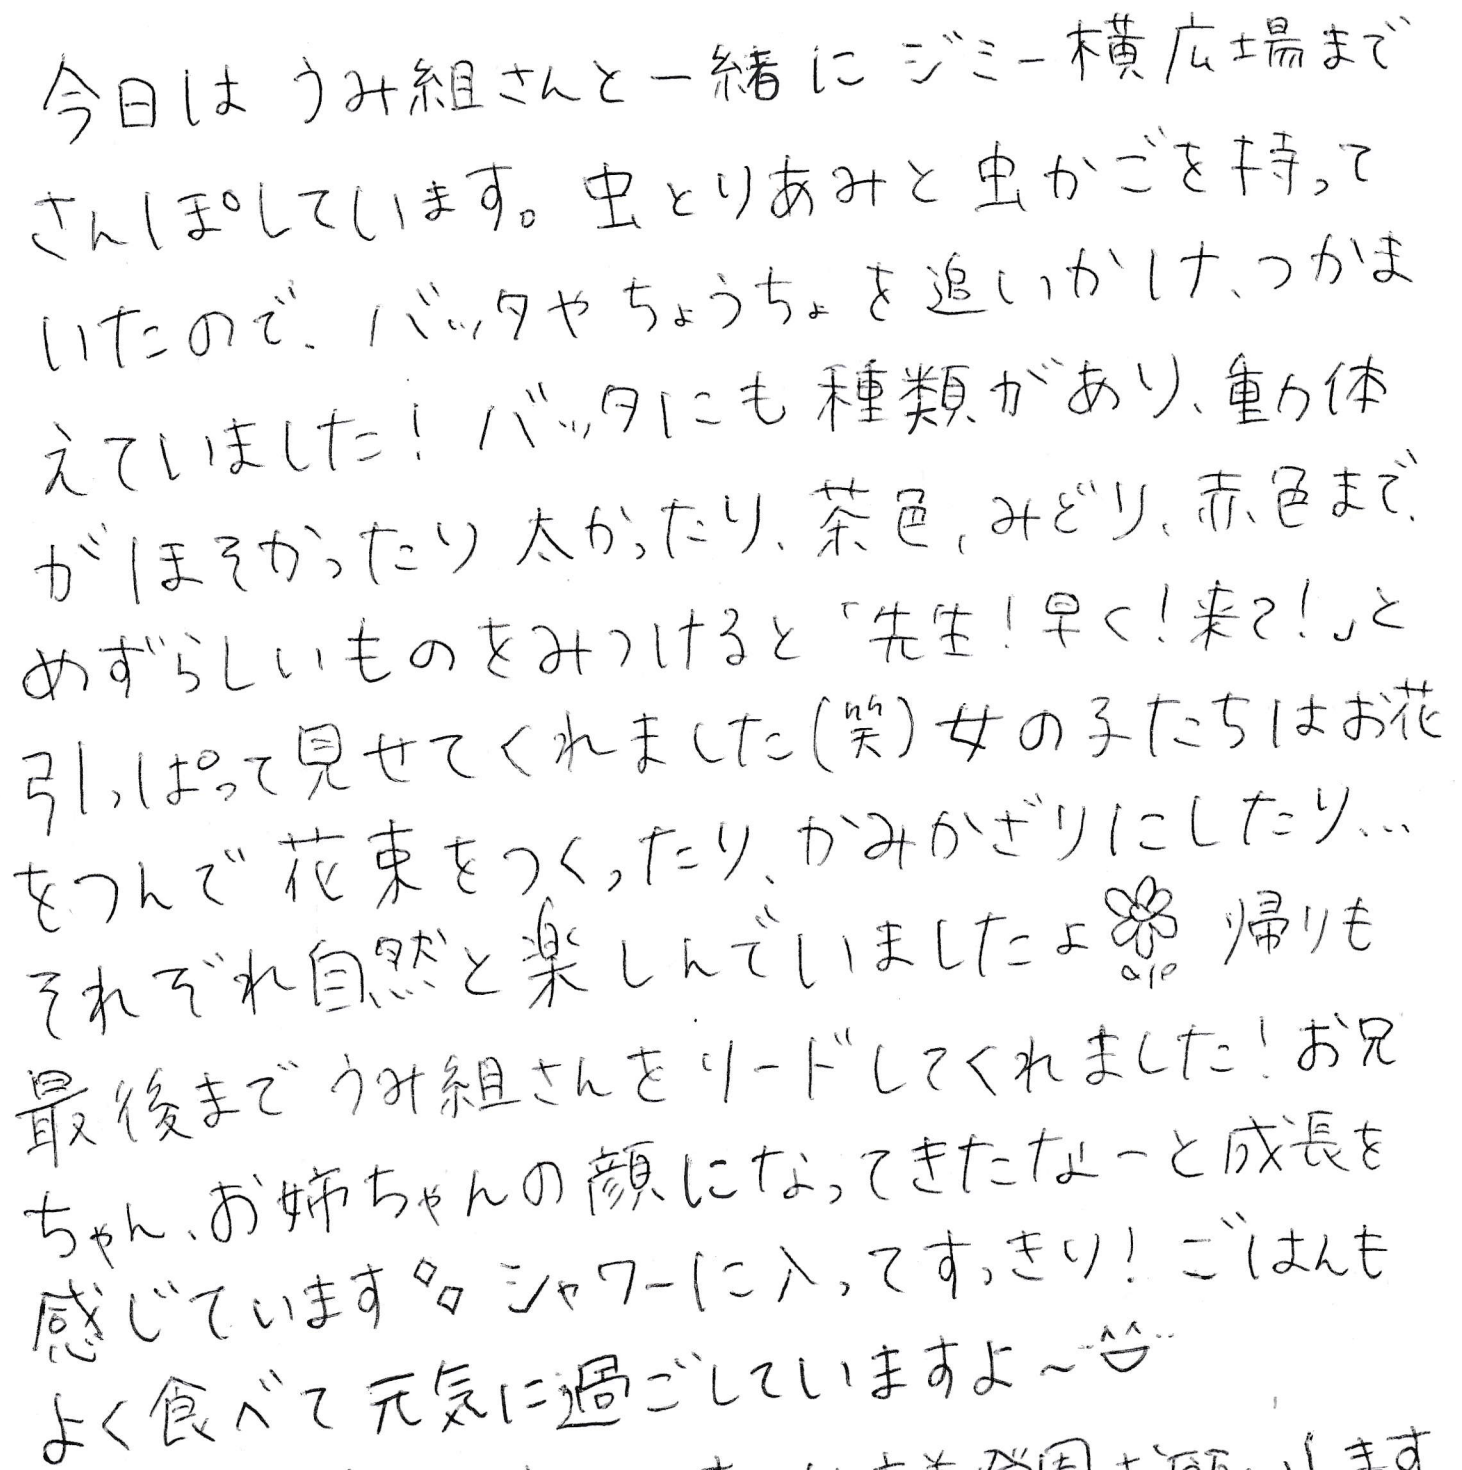 今日は うみ組さんと一緒に ジミー横広場まで
さんぽしています。虫とりあみと虫かごを持って
いたので、バッタやちょうちょを追いかけ、つかま
えていました！バッタにも種類があり、動体
がほそかったり太かったり、茶色、みどり、赤色まで、
めずらしいものをみつけると「先生！早く！来て！」と
引っぱって見せてくれました(笑)女の子たちはお花
をつんで花束をつくったり、かみかざりにしたり…
それぞれ自然と楽しんでいましたよ 帰りも
最後までうみ組さんをリードしてくれました！お兄
ちゃん、お姉ちゃんの顔になってきたなーと成長を
感じています シャワーに入ってすっきり！ごはんも
よく食べて元気に過ごしていますよ～
お願いします